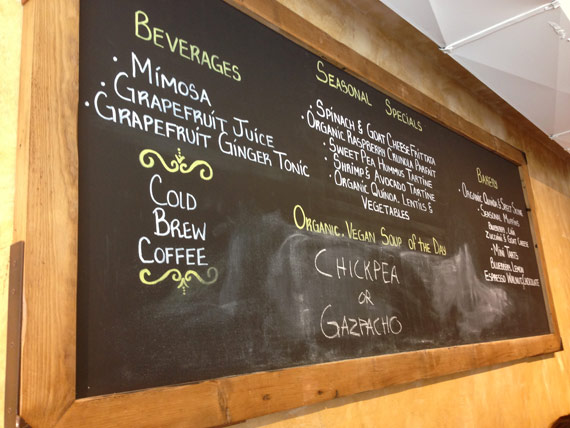 BEVERAGES
· MIMOSA
· GRAPEFRUIT JUICE
· GRAPEFRUIT GINGER TONIC
COLD
BREW
COFFEE
SEASONAL SPECIALS
· SPINACH & GOAT CHEESE FRITTATA
· ORGANIC RASPBERRY GRUNOLA PARFAIT
· SWEET PEA HUMMUS TARTINE
· SHRIMP & AVOCADO TARTINE
· ORGANIC QUINOA, LENTILS &
VEGETABLES
ORGANIC VEGAN SOUP of THE DAY
CHICKPEA
OR
GAZPACHO
BAKERY
· ORGANIC QUINOA & SWEET
· SEASONAL MUFFINS
ZUCCHINI & GOAT CHEESE
· MINI TARTS
BLUEBERRY, LEMON
ESPRESSO WALNUT, CHOCOLATE